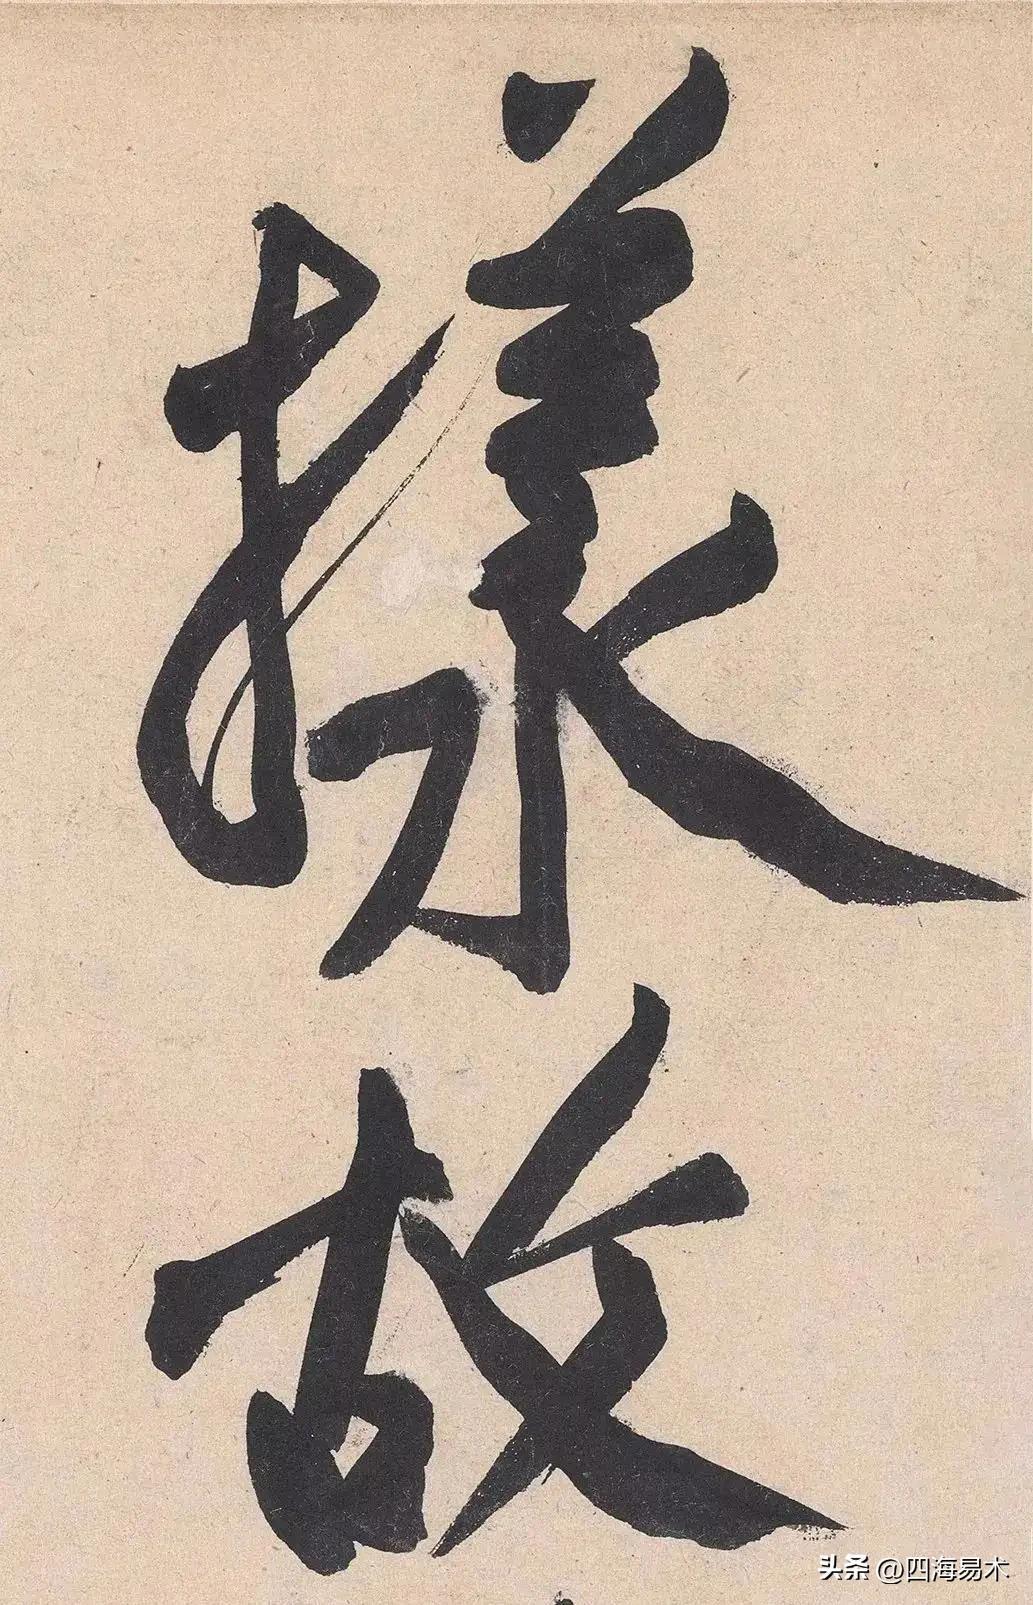 樣故
头条 @四海易木